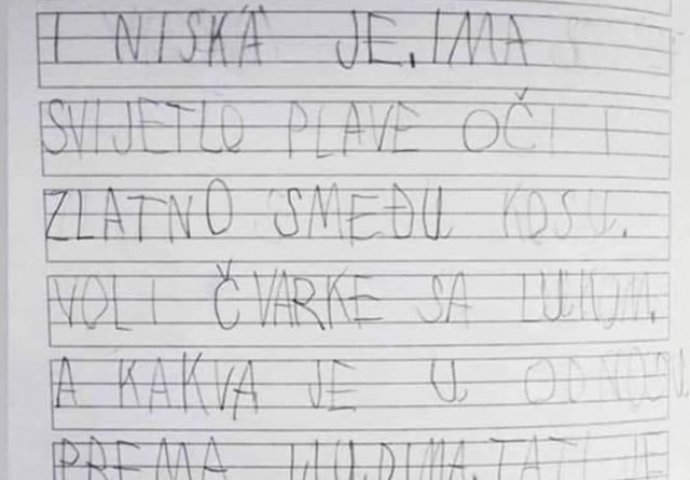 I NISKA JE. IMA
SVIJETLO PLAVE OČI I
ZLATNO SMEĐU KOSU.
VOLI ČVARKE SA LUKOM.
A KAKVA JE U ODNOSU
PREMA LJUDIMA. TATI JE